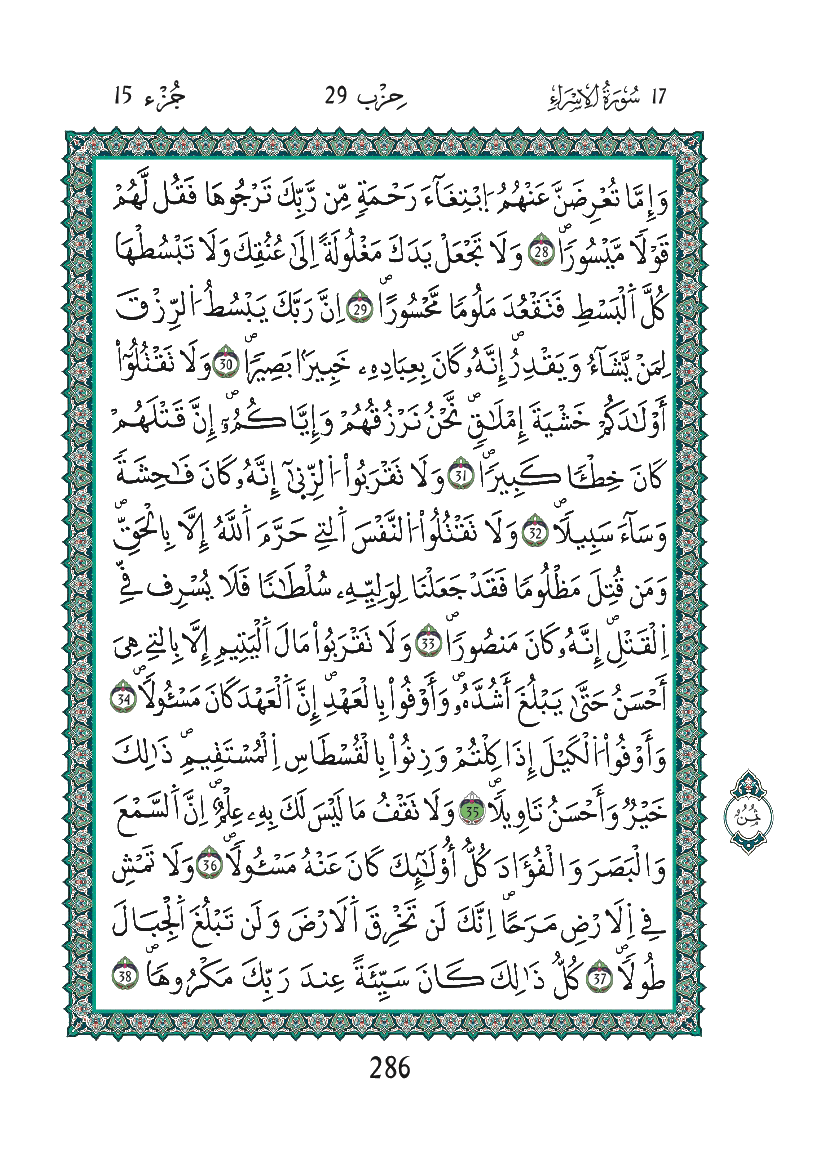 17 سُورَةُ الإِسْرَاءِ حِزْب 29 جُزْء 15
وَإِمَّا تُعْرِضَنَّ عَنْهُمُ اُبْتِغَآءَ رَحْمَةٖ مِّن رَّبِّكَ تَرْجُوهَا فَقُل لَّهُمْ
قَوْلٗا مَّيْسُورٗاۖ 28 وَلَا تَجْعَلْ يَدَكَ مَغْلُولَةً اِلَىٰ عُنُقِكَ وَلَا تَبْسُطْهَا
كُلَّ اَ۬لْبَسْطِ فَتَقْعُدَ مَلُومٗا مَّحْسُورًاۖ 29 اِنَّ رَبَّكَ يَبْسُطُ اُ۬لرِّزْقَ
لِمَنْ يَّشَآءُ وَيَقْدِرُۖ إِنَّهُۥ كَانَ بِعِبَادِهِۦ خَبِيرَۢا بَصِيرٗاۖ 30 وَلَا تَقْتُلُوٓاْ
أَوْلَٰدَكُمْ خَشْيَةَ إِمْلَٰقٖۖ نَّحْنُ نَرْزُقُهُمْ وَإِيَّاكُمُۥٓۖ إِنَّ قَتْلَهُمْ
كَانَ خِطْـٔٗا كَبِيرٗاۖ 31 وَلَا تَقْرَبُواْ اُ۬لزِّنَىٰٓ إِنَّهُۥ كَانَ فَٰحِشَةٗ
وَسَآءَ سَبِيلٗاۖ 32 وَلَا تَقْتُلُواْ اُ۬لنَّفْسَ اَ۬لتِے حَرَّمَ اَ۬للَّهُ إِلَّا بِالْحَقِّۖ
وَمَن قُتِلَ مَظْلُومٗا فَقَدْ جَعَلْنَا لِوَلِيِّهِۦ سُلْطَٰنٗا فَلَا يُسْرِف فِّے
اِ۬لْقَتْلِۖ إِنَّهُۥ كَانَ مَنصُورٗاۖ 33 وَلَا تَقْرَبُواْ مَالَ اَ۬لْيَتِيمِ إِلَّا بِالتِے هِيَ
أَحْسَنُ حَتَّىٰ يَبْلُغَ أَشُدَّهُۥۖ وَأَوْفُواْ بِالْعَهْدِۖ إِنَّ اَ۬لْعَهْدَ كَانَ مَسْـُٔولٗاۖ 34
وَأَوْفُواْ اُ۬لْكَيْلَ إِذَا كِلْتُمْ وَزِنُواْ بِالْقُسْطَاسِ اِ۬لْمُسْتَقِيمِۖ ذَٰلِكَ
خَيْرٞ وَأَحْسَنُ تَاوِيلٗاۖ 35 وَلَا تَقْفُ مَا لَيْسَ لَكَ بِهِۦ عِلْمٌۖ اِنَّ اَ۬لسَّمْعَ
وَالْبَصَرَ وَالْفُؤَادَ كُلُّ أُوْلَٰٓئِكَ كَانَ عَنْهُ مَسْـُٔولٗاۖ 36 وَلَا تَمْشِ
فِے اِ۬لَارْضِ مَرَحًاۖ اِنَّكَ لَن تَخْرِقَ اَ۬لَارْضَ وَلَن تَبْلُغَ اَ۬لْجِبَالَ
طُولٗاۖ 37 كُلُّ ذَٰلِكَ كَانَ سَيِّئَةً عِندَ رَبِّكَ مَكْرُوهٗاۖ 38
ثُمُنُ
286